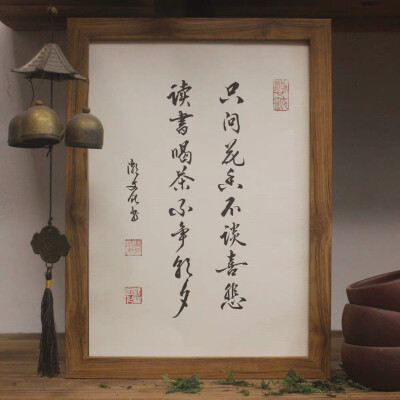 只问花香不谈喜悲
读书喝茶不争朝夕